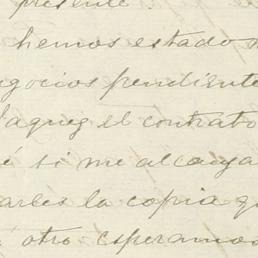 presente.
hemos estado
negocios pendiente
el contrato
si me alcanza
la copia q
otro esperamos